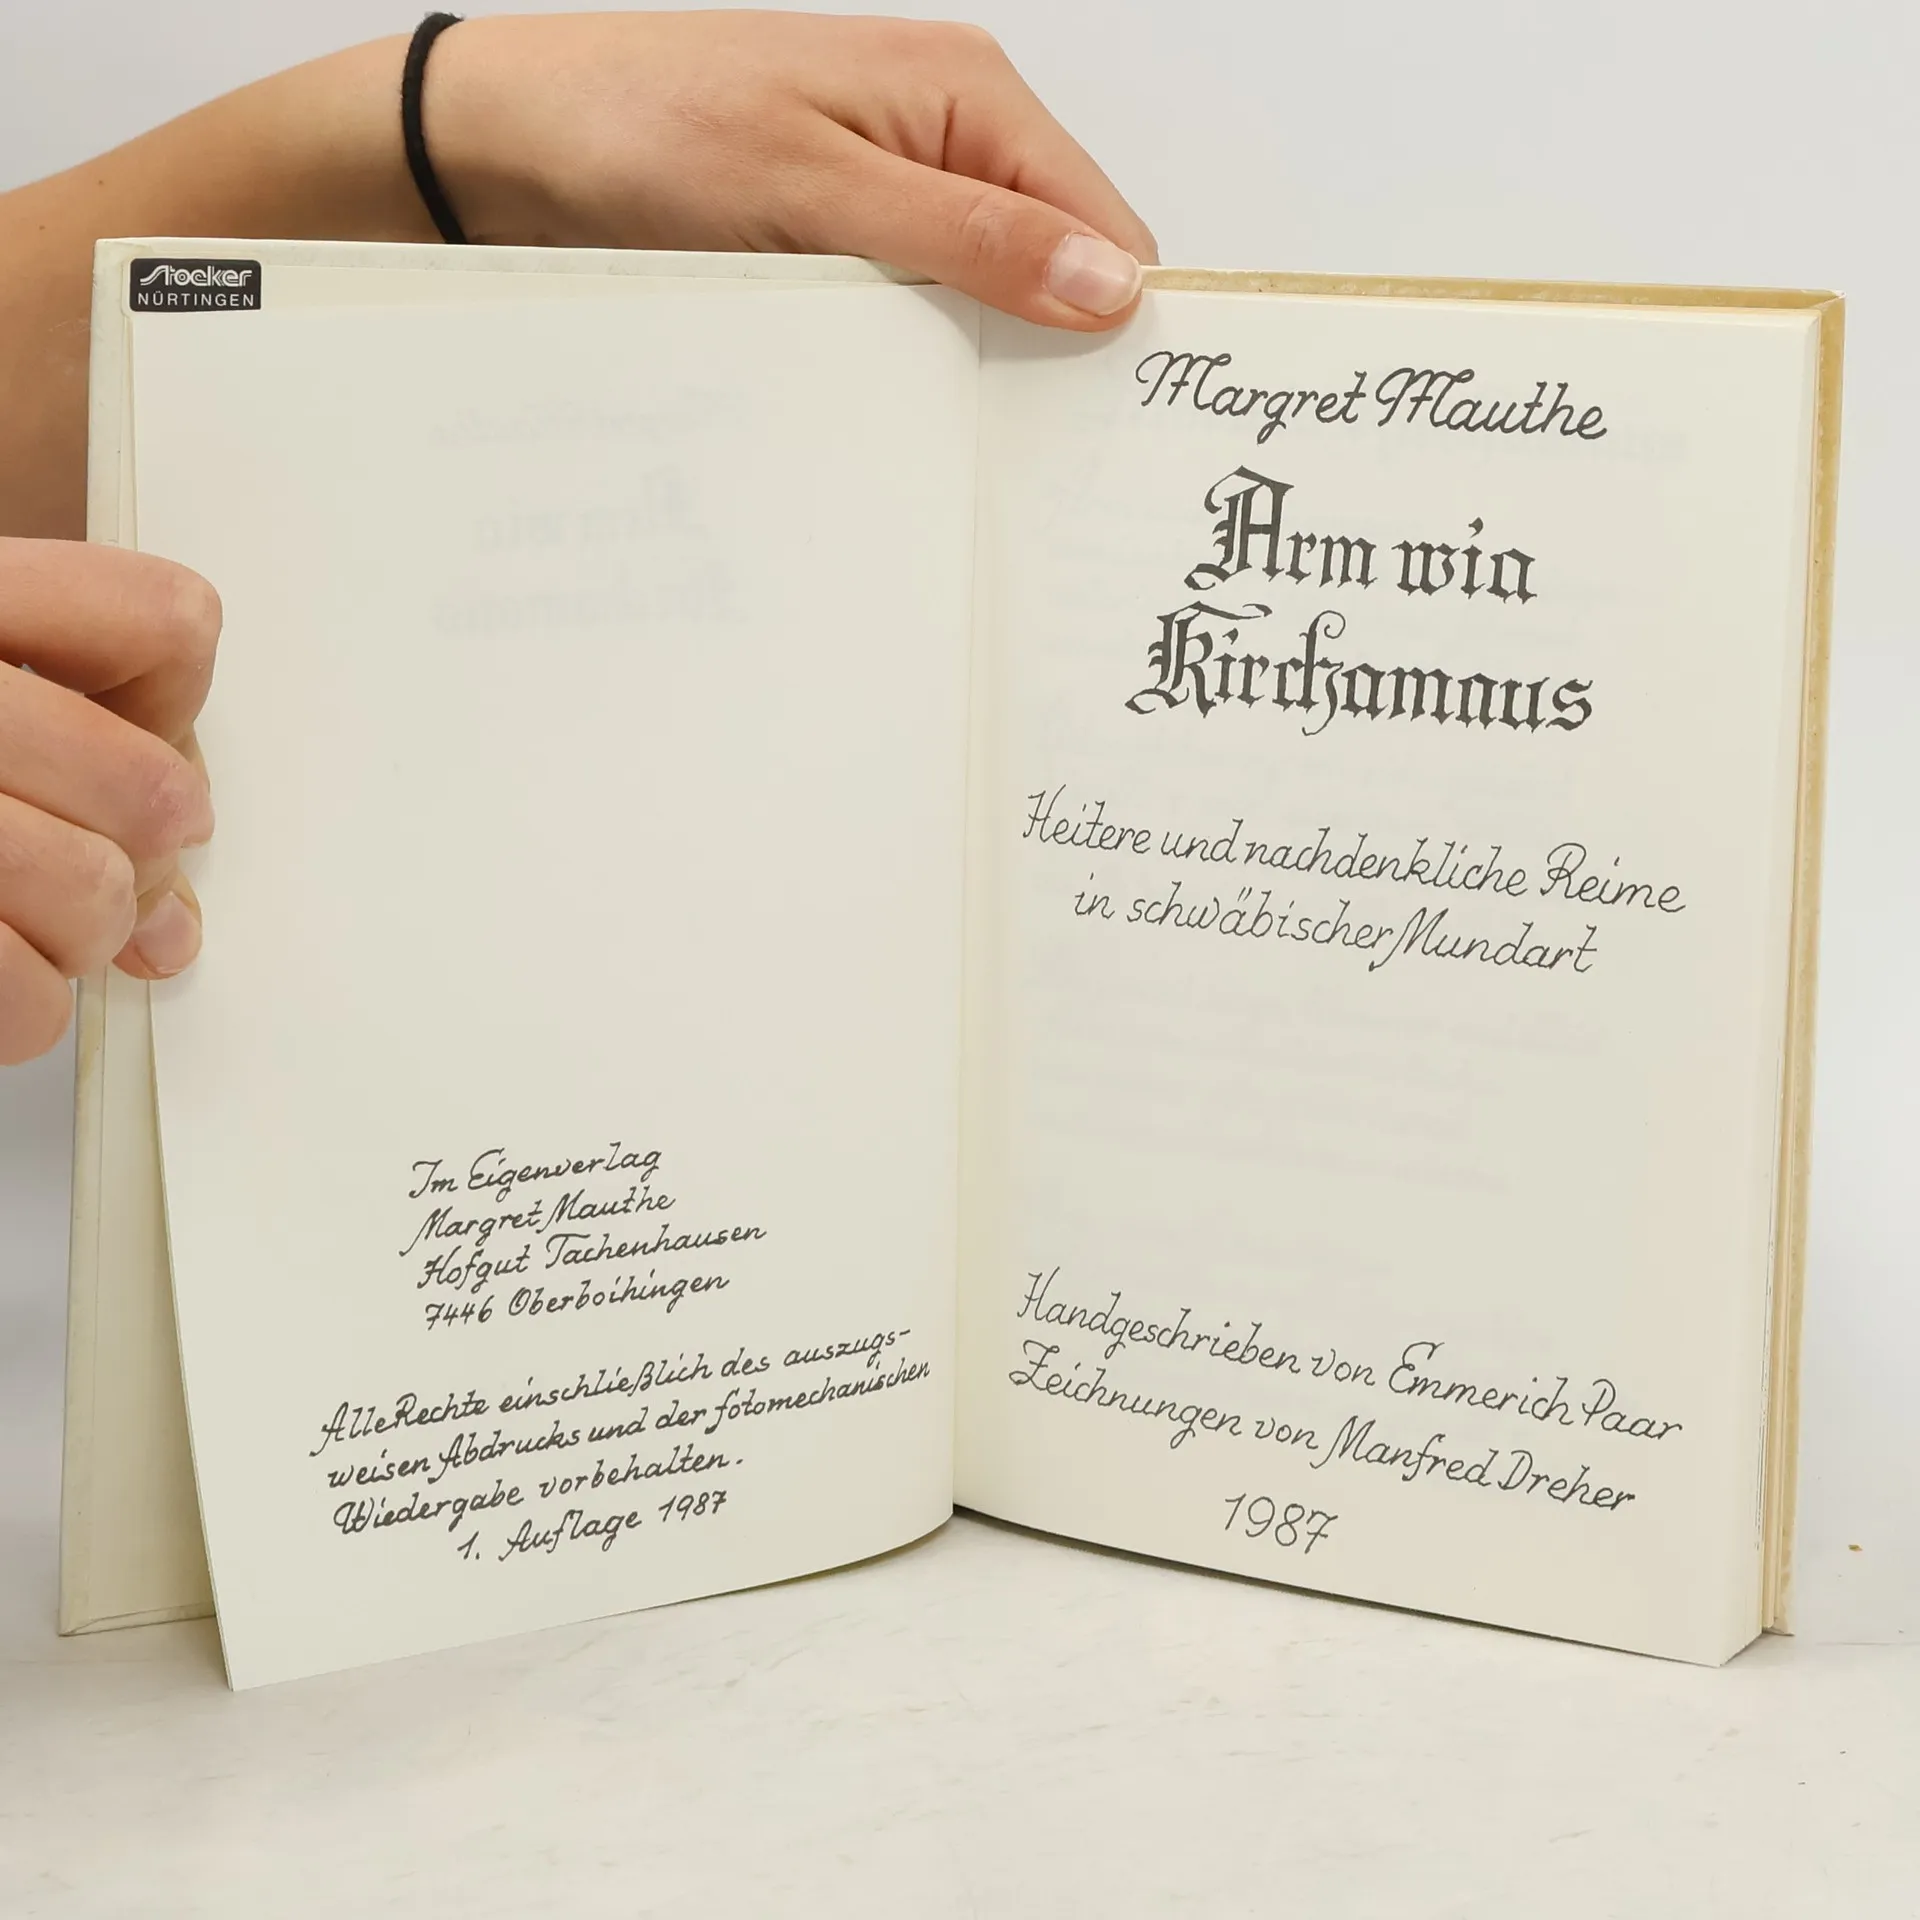 Stocker
NÜRTINGEN
Im Eigenverlag
Margret Mauthe
Hofgut Tachenhausen
7446 Oberboihingen
Alle Rechte einschließlich des auszugs-
weisen Abdrucks und der fotomechanischen
Wiedergabe vorbehalten.
1. Auflage 1987
Margret Mauthe
Arm wia
Kirchamaus
Heitere und nachdenkliche Reime
in schwäbischer Mundart
Handgeschrieben von Emmerich Paar
Zeichnungen von Manfred Dreher
1987